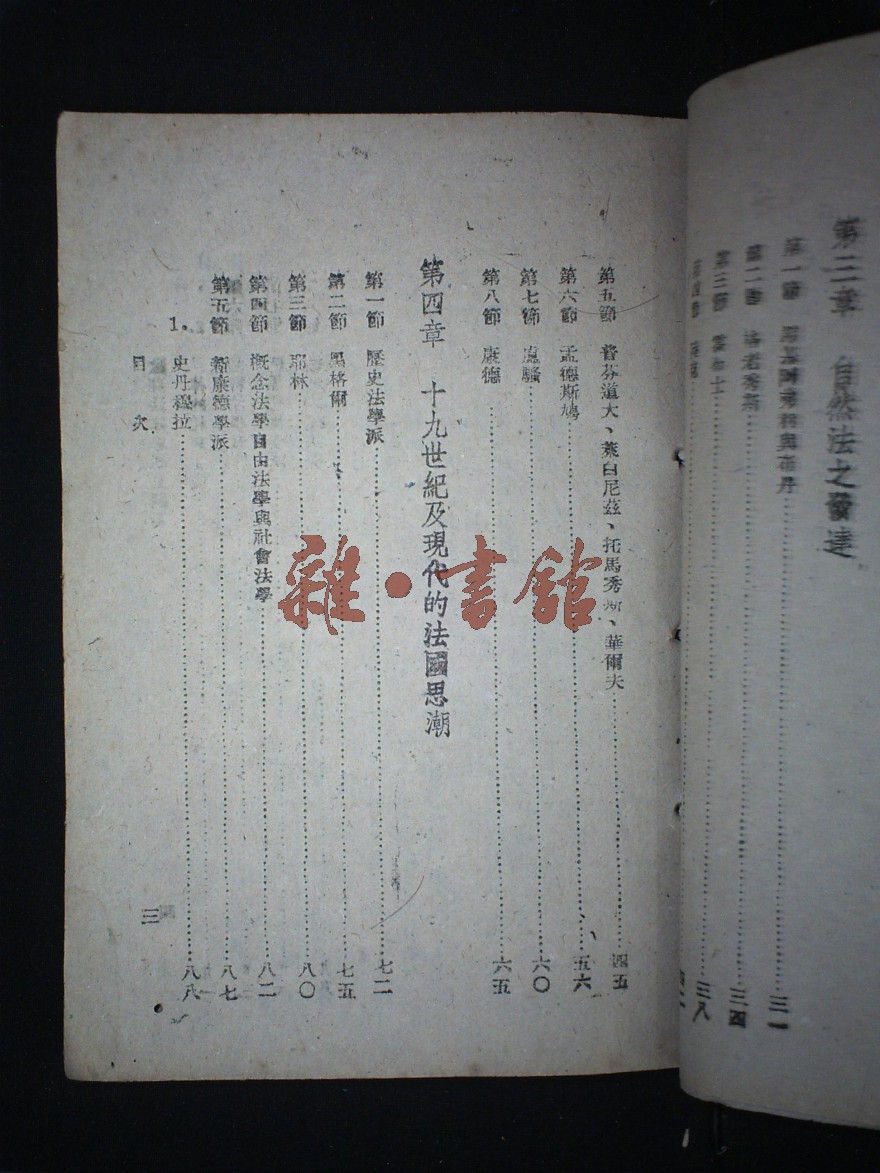 第三章 自然法之發達
第一節 與布丹 三一
第二節 格老秀斯 三四
第三節 霍布士 三八
第四節
第五節 普芬道大、萊白尼茲、托馬秀斯、華爾夫 四五
第六節 孟德斯鳩 五六
第七節 盧騷 六〇
第八節 康德 六五
第四章 十九世紀及現代的法國思潮
第一節 歷史法學派 七二
第二節 黑格爾 七五
第三節 耶林 八〇
第四節 概念法學自由法學與社會法學 八二
第五節 新康德學派 八七
1. 史丹穆拉 八八
目次 三
雜·書館